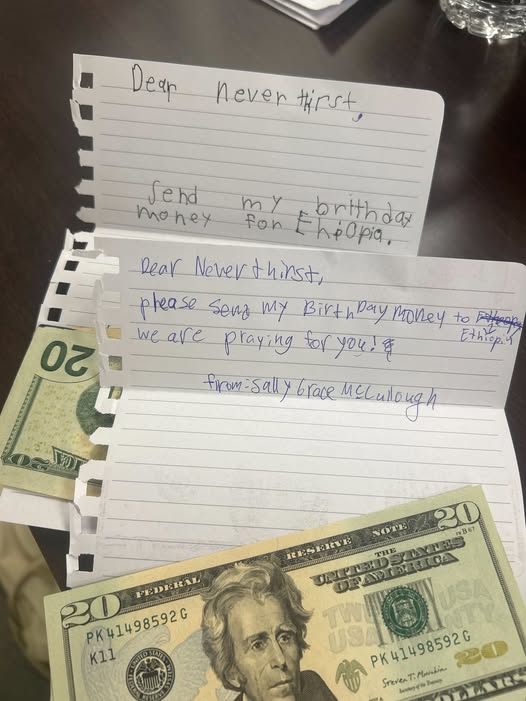 Dear Never thirst,
Send my brithday
money for EheOpia.
Dear Never thirst,
please send my BirthDay money to
Ethiopia
we are praying for you!
from: Sally Grace McCullough
20
20
20
FEDERAL RESERVE NOTE
20
THE
UNITED STATES
OF AMERICA
PK41498592G
K11
PK41498592G
Steven T. Mnuchin
Secretary of the Treasury
20
DOLLARS